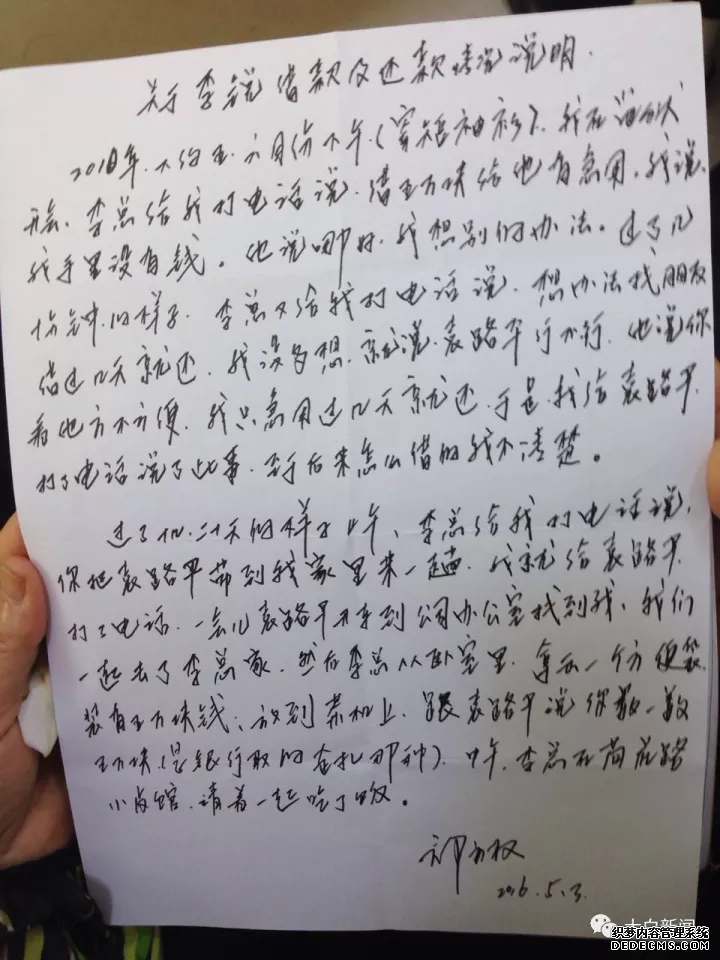 关于李锐借款及还款情况说明.
2010年.大约五.六月份下午(穿短袖衫).我在
开会.李总给我打电话说.借五万块给他有急用.我说.
我手里没有钱。他说那好.我想别的办法。过了几
十分钟的样子.李总又给我打电话说.想办法找朋友
借过几天就还.我没多想.就说袁路平行不行.他说你
看他方不方便.我只急用过几天就还.于是我给袁路平
打了电话说了此事.至于后来怎么借的我不清楚。
过了.二十天的样子上午、李总给我打电话说,
你把袁路平带到我家里来一趟.我就给袁路平.
打了电话.一会儿袁路平开车到公司办公室找到我、我们
一起去了李总家.然后李总从卧室里.拿出一个方便袋
装有五万块钱、放到茶机上.跟袁路平说你数一数
五万块(是银行取的查扎那种).中午.李总在
小卤馆.请着一起吃了饭。
2016.5.3.
大白新闻
织梦内容管理系统
DEDECMS.COM